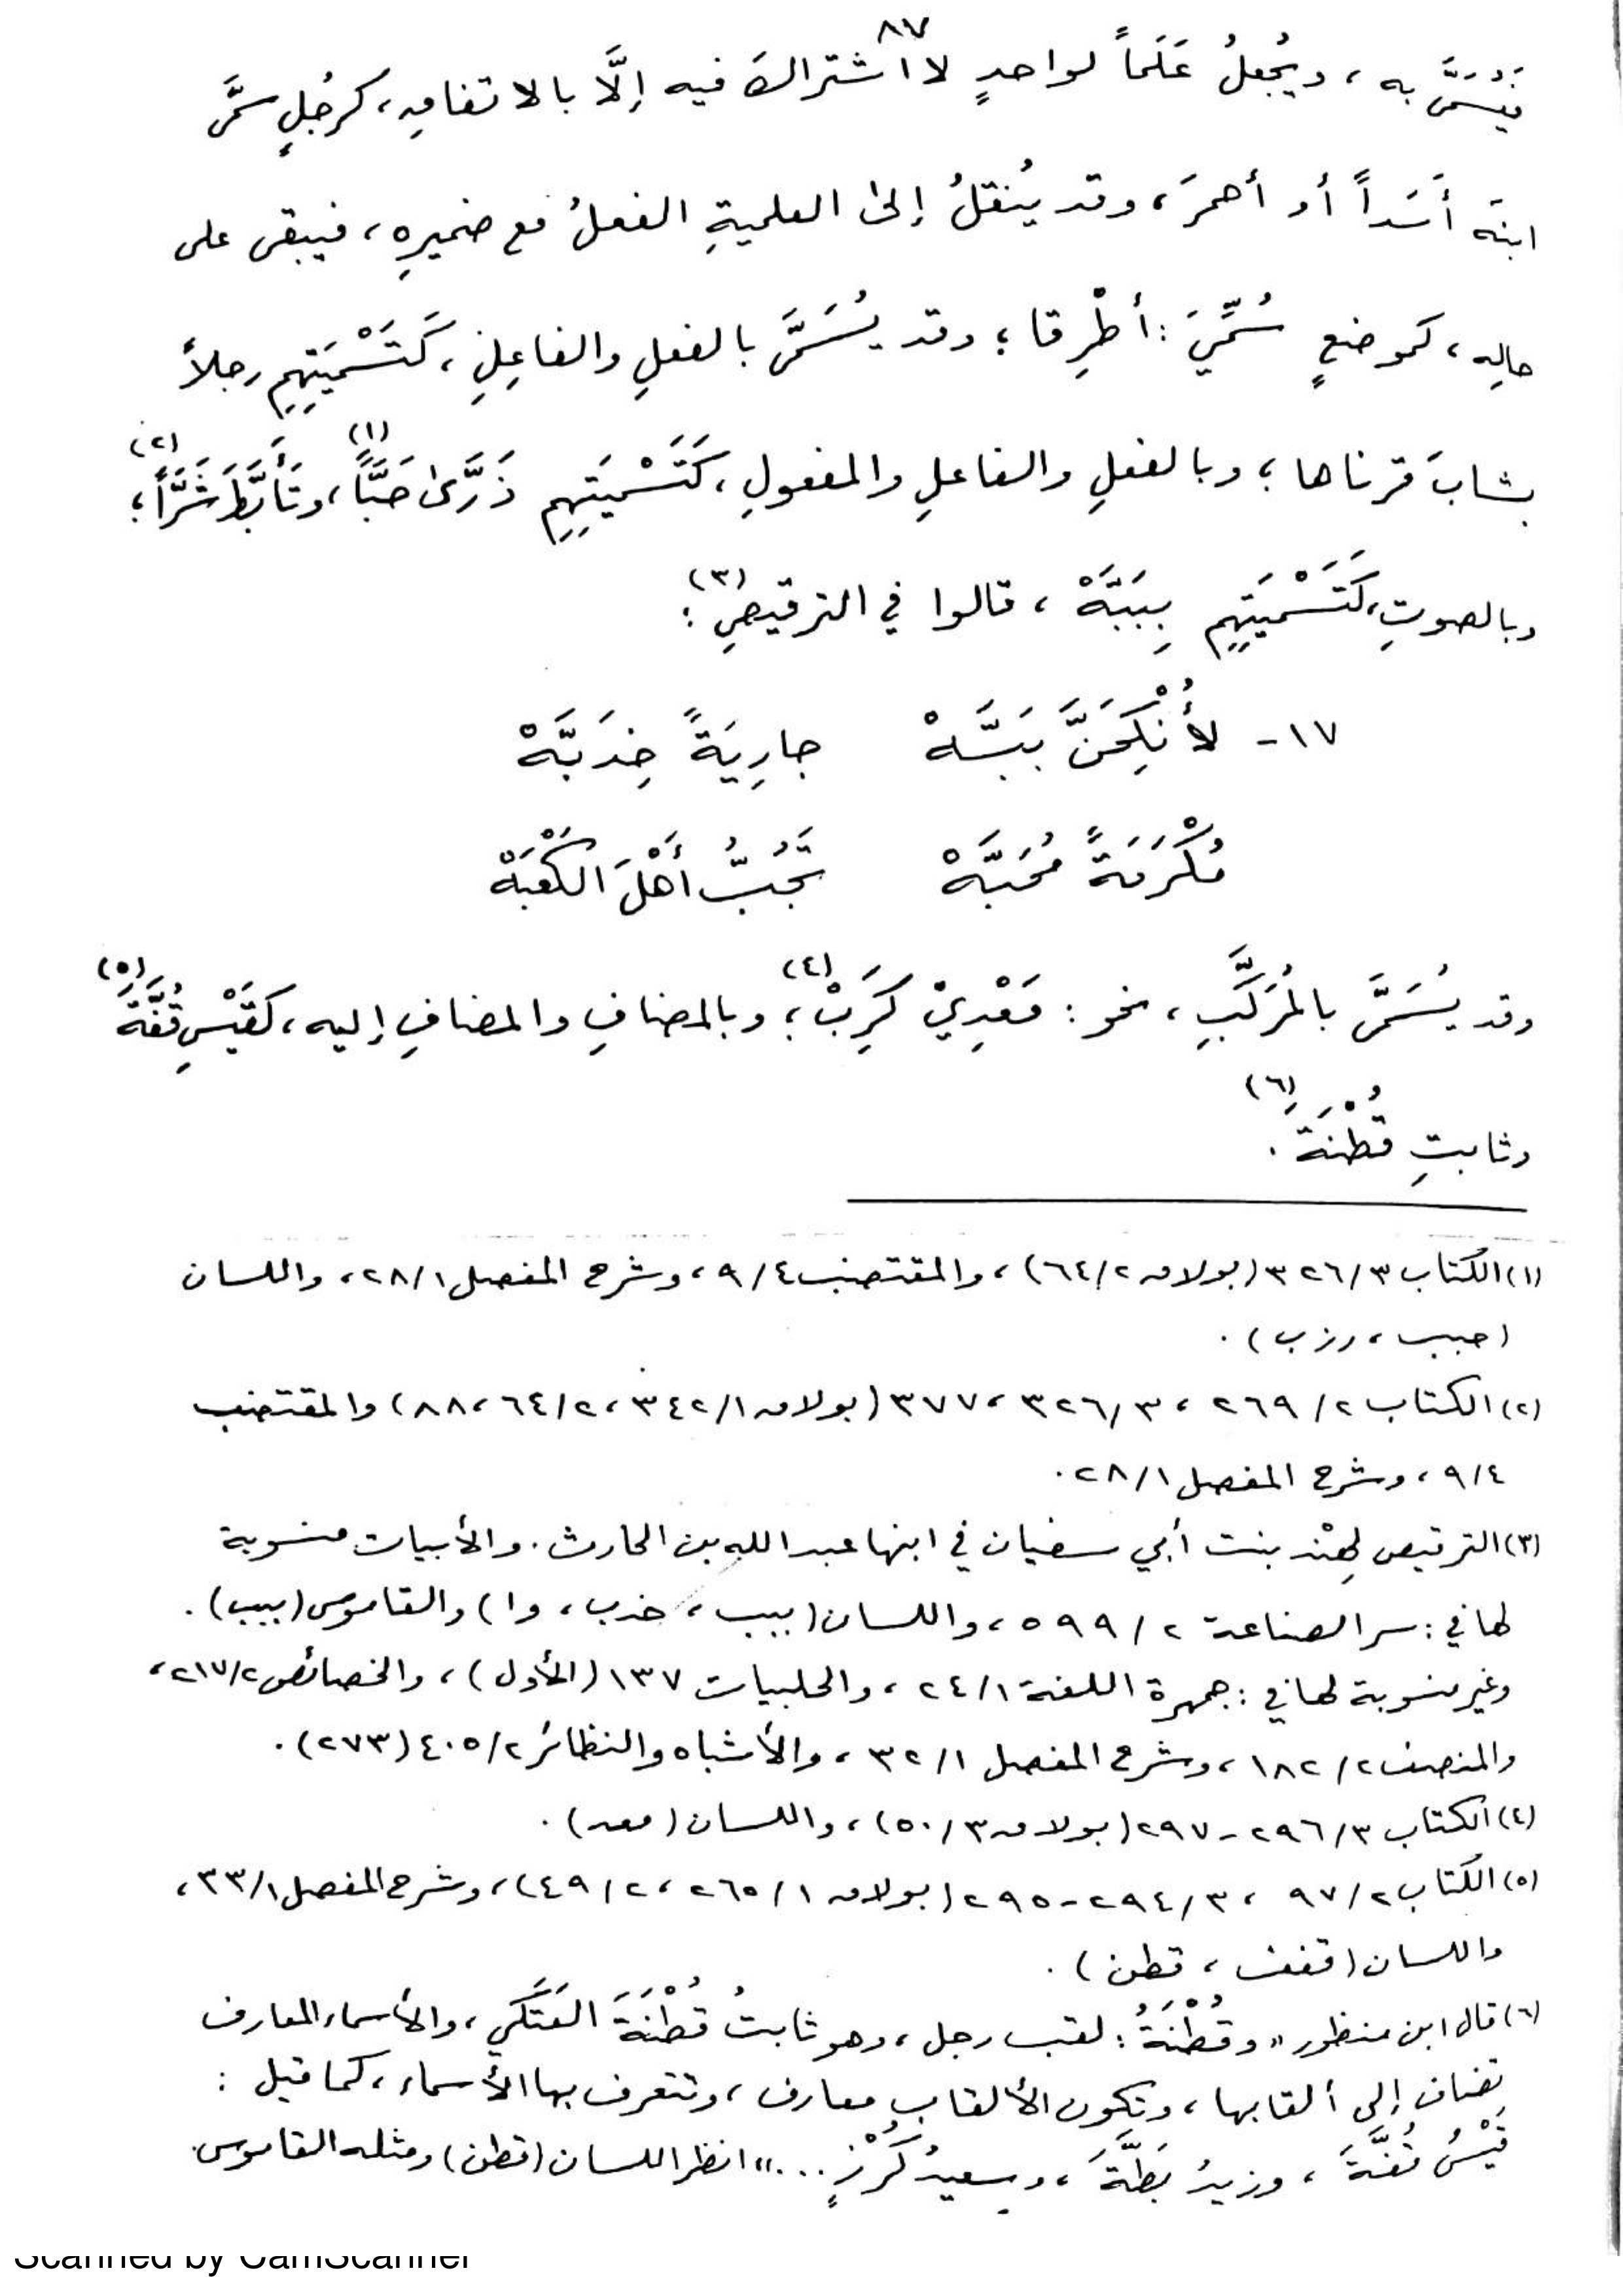 ٨٧
فَيُسَمَّى به ، ويُجعلُ عَلَماً لواحدٍ لا اشتراكَ فيه إلَّا بالاتفاقِ ، كرجُلٍ سمَّى
ابنَه أَسَداً أو أحمرَ ، وقد يُنقلُ إلى العلميةِ الفعلُ مع ضميرِهِ ، فيبقى على
حالِه ، كموضعٍ سُمِّيَ : أطْرِقا ؛ وقد يُسَمَّى بالفعلِ والفاعِلِ ، كَتَسْمِيَتِهِم رجلاً
بشابَ قرناها ؛ وبالفعلِ والفاعلِ والمفعولِ ، كَتَسْميَتِهِم ذَرَّى حَبًّا (١) ، وتَأَبَّطَ شَرًّا (٢) ؛
وبالصوتِ ، كَتَسْميَتِهِم بِبَبَّهْ ، قالوا في الترقيصِ (٣) :
١٧- لأُنْكِحَنَّ بَبَّهْ جارِيَةً خِدَبَّهْ
مُكْرَمَةً مُحَبَّهْ تَجُبُّ أَهْلَ الكَعْبَهْ
وقد يُسَمَّى بالمُرَكَّبِ ، نحو : مَعْدِيْ كَرِبْ (٤) ؛ وبالمضافِ والمضافِ إليه ، كقَيْسِ قُفَّةَ (٥)
وثابتِ قُطْنَةَ (٦) .
(١) الكتاب ٣/ ٣٢٦ (بولاق ٢/ ٦٤) ، والمقتضب ٤/ ٩ ، وشرح المفصل ١/ ٢٨ ، واللسان
(حبب ، رزب) .
(٢) الكتاب ٢/ ٢٦٩ ، ٣/ ٣٢٦ ، ٣٧٧ (بولاق ١/ ٣٤٢ ، ٢/ ٦٤ ، ٨٨) والمقتضب
٤/ ٩ ، وشرح المفصل ١/ ٢٨ .
(٣) الترقيص لهِنْد بنت أبي سفيان في ابنها عبد الله بن الحارث . والأبيات منسوبة
لها في : سر الصناعة ٢/ ٥٩٩ ، واللسان (ببب ، خدب ، وا) والقاموس (ببب) .
وغير منسوبة لها في : جمهرة اللغة ١/ ٢٤ ، والحلبيات ١٣٧ (الأول) ، والخصائص ٢/ ٢١٧ ،
والمنصف ٢/ ١٨٢ ، وشرح المفصل ١/ ٣٢ ، والأشباه والنظائر ٢/ ٤٠٥ (٢٧٣) .
(٤) الكتاب ٣/ ٢٩٦ - ٢٩٧ (بولاق ٣/ ٥٠) ، واللسان (معد) .
(٥) الكتاب ٢/ ٩٧ ، ٣/ ٢٩٤ - ٢٩٥ (بولاق ١/ ٢٦٥ ، ٢/ ٤٩) ، وشرح المفصل ١/ ٣٣ ،
واللسان (قفف ، قطن) .
(٦) قال ابن منظور " وقُطْنَةُ : لقب رجل ، وهو ثابتُ قُطْنَةَ العَتَكي ، والأسماء المعارف
تضاف إلى ألقابها ، وتكون الألقاب معارف ، وتتعرف بها الأسماء ، كما قيل :
قَيْسُ قُفَّةَ ، وزيدُ بَطَّةَ ، وسعيدُ كُرْزٍ ... " انظر اللسان (قطن) ومثله القاموس
Scanned by CamScanner